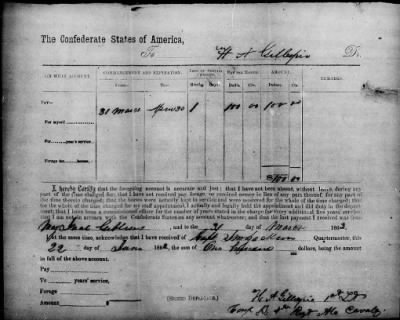 The Confederate States of America,
To H A Gillespie Dr.
ON WHAT ACCOUNT. COMMENCEMENT AND EXPIRATION. TERM OF SERVICE CHARGED. PAY PER MONTH. AMOUNT. REMARKS.
Months. Days. Dolls. Cts. Dolls. Cts.
Pay— 31 1 100 00 100 00
For myself
years' service.
Forage for horses.
$100 00
I hereby Certify that the foregoing account is accurate and just; that I have not been absent without leave during any
part of the time charged for; that I have not received pay, forage or received money in lieu of any part thereof for any part of
the time therein charged; that the horses were actually kept in service and were mustered for the whole of the time charged; that
for the whole of the time charged for my staff appointment, I actually and legally held the appointment and did duty in the depart-
ment; that I have been a commissioned officer for the number of years stated in the charge for every additional five years' service;
that I am not in arrears with the Confederate States on any account whatsoever; and that the last payment I received was from
and to the 31 day of March 1862.
At the same time, acknowledge that I have received of Quartermaster, this
22 day of 1862, the sum of One hundred dollars, being the amount
in full of the above account.
Pay
To years' service,
Forage
Amount $
[SIGNED DUPLICATE.]
H A Gillespie 1st Lt
Ala Cavalry